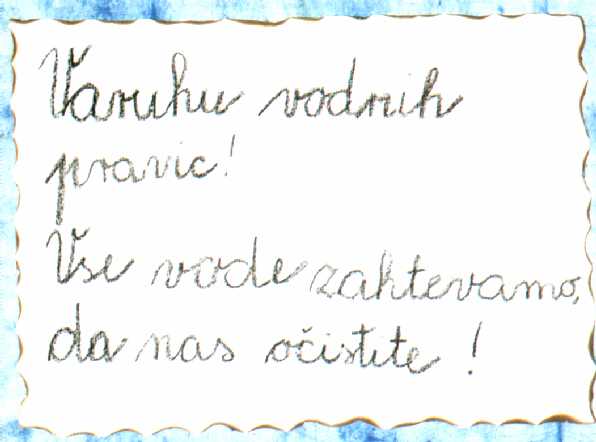 Varuhu vodnih
pravic!
Vse vode zahtevamo,
da nas očistite!